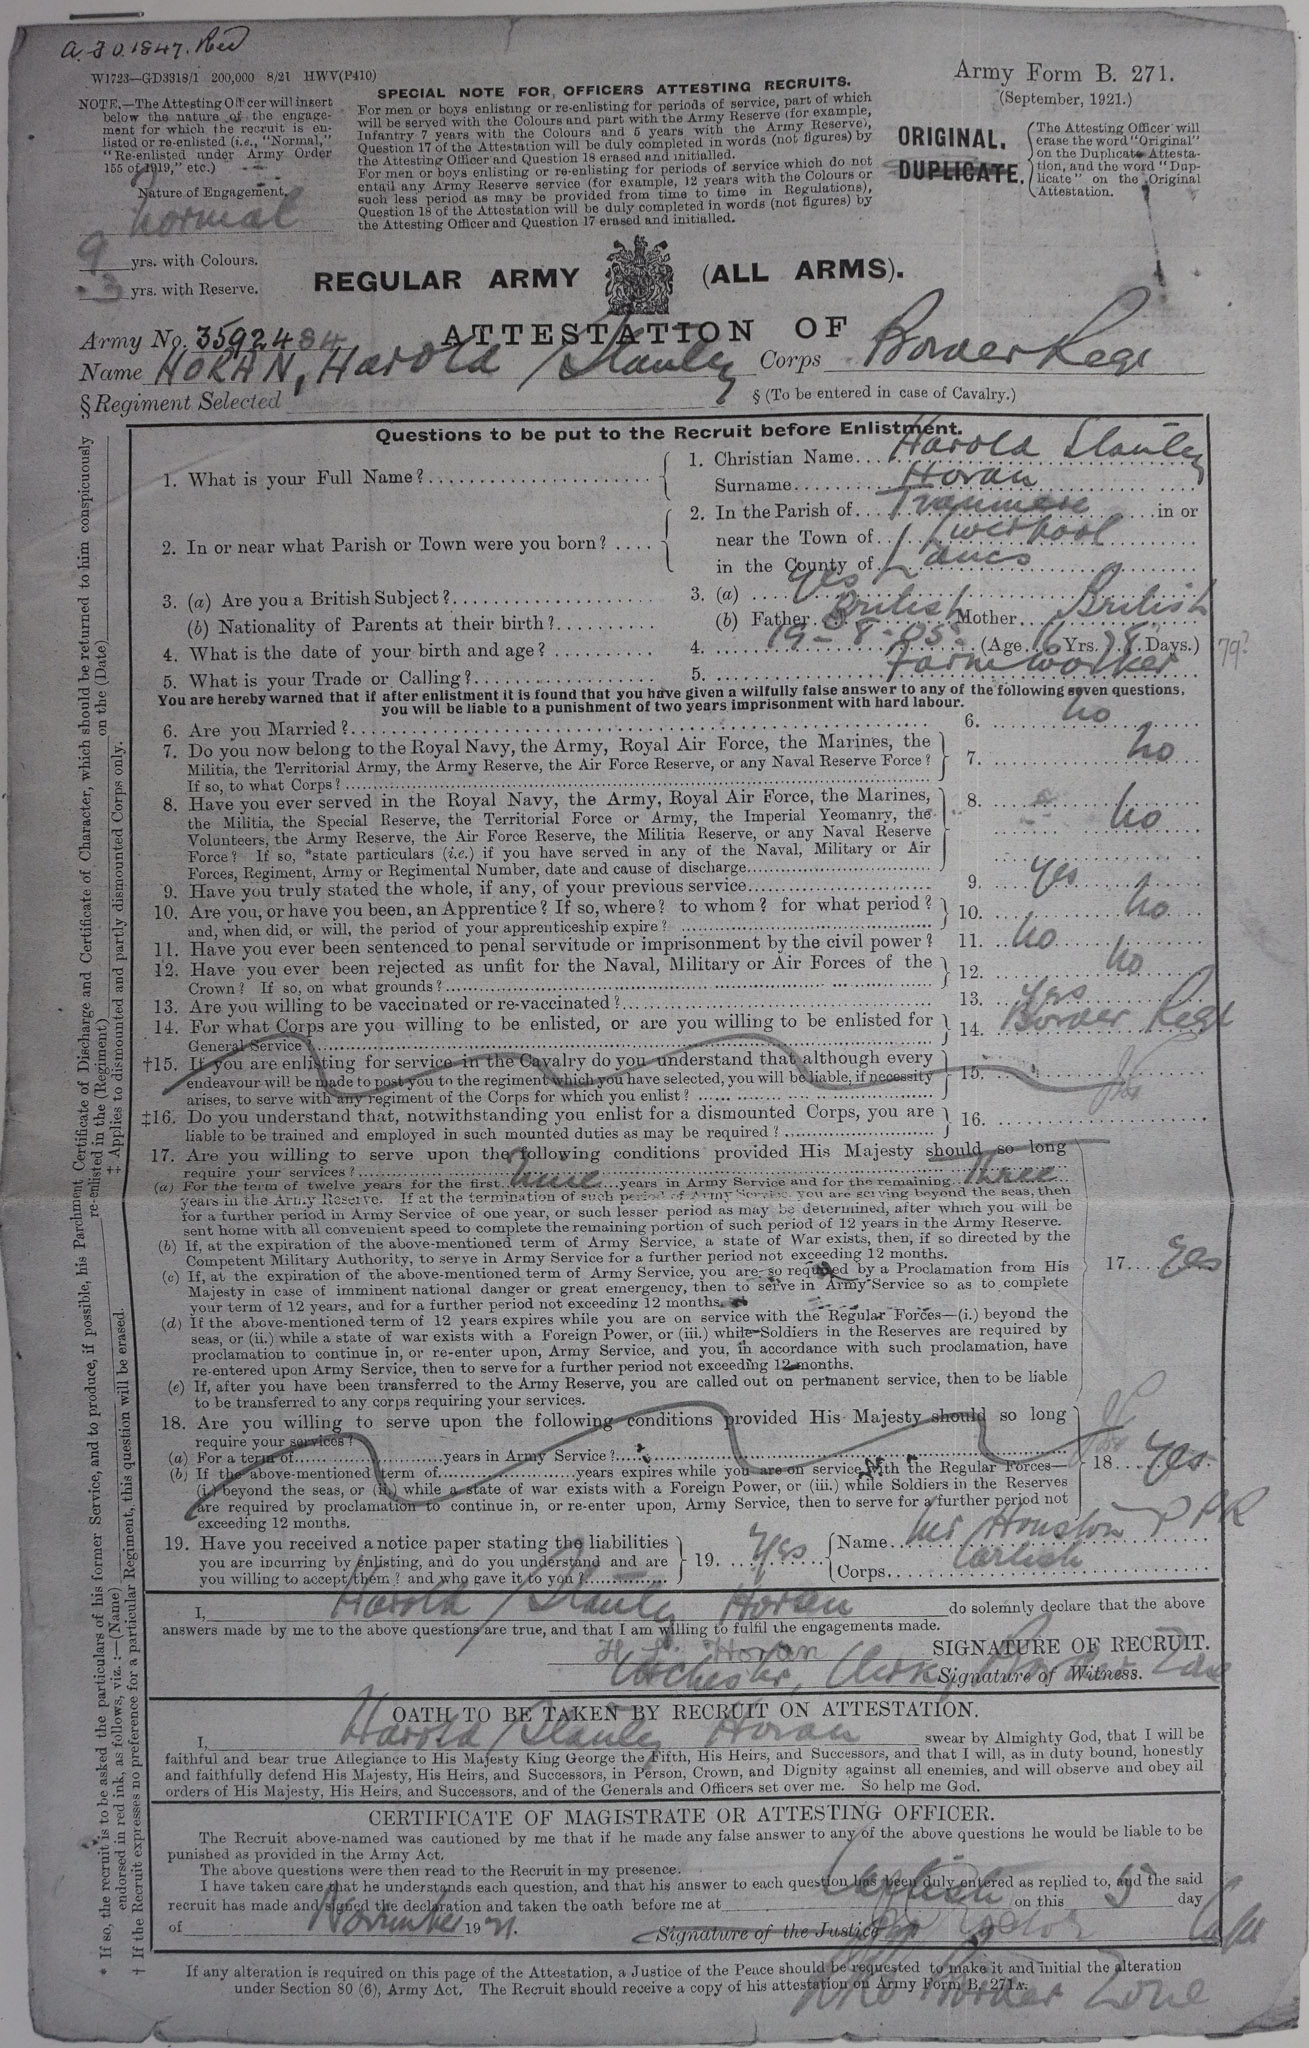 A.F.O. 1847. Red
W1723—GD3318/1 200,000 8/21 HWV(P410)
NOTE.—The Attesting Officer will insert
below the nature of the engage-
ment for which the recruit is en-
listed or re-enlisted (i.e., "Normal,"
"Re-enlisted under Army Order
155 of 1919," etc.)
Nature of Engagement.
Normal
9 yrs. with Colours.
3 yrs. with Reserve.
SPECIAL NOTE FOR OFFICERS ATTESTING RECRUITS.
For men or boys enlisting or re-enlisting for periods of service, part of which
will be served with the Colours and part with the Army Reserve (for example,
Infantry 7 years with the Colours and 5 years with the Army Reserve),
Question 17 of the Attestation will be duly completed in words (not figures) by
the Attesting Officer and Question 18 erased and initialled.
For men or boys enlisting or re-enlisting for periods of service which do not
entail any Army Reserve service (for example, 12 years with the Colours or
such less period as may be provided from time to time in Regulations),
Question 18 of the Attestation will be duly completed in words (not figures) by
the Attesting Officer and Question 17 erased and initialled.
Army Form B. 271.
(September, 1921.)
ORIGINAL.
DUPLICATE.
(The Attesting Officer will
erase the word "Original"
on the Duplicate Attesta-
tion, and the word "Dup-
licate" on the Original
Attestation.
REGULAR ARMY (ALL ARMS).
ATTESTATION OF
Army No. 3592484
Name HORAN, Harold Stanley Corps Border Regt
§ Regiment Selected § (To be entered in case of Cavalry.)
Questions to be put to the Recruit before Enlistment.
1. What is your Full Name? 1. Christian Name Harold Stanley
Surname Horan
2. In or near what Parish or Town were you born? 2. In the Parish of Tranmere in or
near the Town of Liverpool
in the County of Lancs
3. (a) Are you a British Subject? 3. (a) Yes
(b) Nationality of Parents at their birth? (b) Father British Mother British
4. What is the date of your birth and age? 4. 19-8-05 (Age 16 Yrs. 78 Days.) 79?
5. What is your Trade or Calling? 5. Farm worker
You are hereby warned that if after enlistment it is found that you have given a wilfully false answer to any of the following seven questions,
you will be liable to a punishment of two years imprisonment with hard labour.
6. Are you Married? 6. No
7. Do you now belong to the Royal Navy, the Army, Royal Air Force, the Marines, the
Militia, the Territorial Army, the Army Reserve, the Air Force Reserve, or any Naval Reserve Force? 7. No
If so, to what Corps?
8. Have you ever served in the Royal Navy, the Army, Royal Air Force, the Marines, 8.
the Militia, the Special Reserve, the Territorial Force or Army, the Imperial Yeomanry, the No
Volunteers, the Army Reserve, the Air Force Reserve, the Militia Reserve, or any Naval Reserve
Force? If so, *state particulars (i.e.) if you have served in any of the Naval, Military or Air
Forces, Regiment, Army or Regimental Number, date and cause of discharge
9. Have you truly stated the whole, if any, of your previous service 9. Yes
10. Are you, or have you been, an Apprentice? If so, where? to whom? for what period? 10. No
and, when did, or will, the period of your apprenticeship expire?
11. Have you ever been sentenced to penal servitude or imprisonment by the civil power? 11. No
12. Have you ever been rejected as unfit for the Naval, Military or Air Forces of the 12. No
Crown? If so, on what grounds?
13. Are you willing to be vaccinated or re-vaccinated? 13. Yes
14. For what Corps are you willing to be enlisted, or are you willing to be enlisted for 14. Border Regt
General Service?
†15. If you are enlisting for service in the Cavalry do you understand that although every
endeavour will be made to post you to the regiment which you have selected, you will be liable, if necessity 15.
arises, to serve with any regiment of the Corps for which you enlist?
‡16. Do you understand that, notwithstanding you enlist for a dismounted Corps, you are 16.
liable to be trained and employed in such mounted duties as may be required?
17. Are you willing to serve upon the following conditions provided His Majesty should so long
require your services?
(a) For the term of twelve years for the first Nine years in Army Service and for the remaining Three
years in the Army Reserve. If at the termination of such period of Army Service you are serving beyond the seas, then
for a further period in Army Service of one year, or such lesser period as may be determined, after which you will be
sent home with all convenient speed to complete the remaining portion of such period of 12 years in the Army Reserve.
(b) If, at the expiration of the above-mentioned term of Army Service, a state of War exists, then, if so directed by the
Competent Military Authority, to serve in Army Service for a further period not exceeding 12 months.
(c) If, at the expiration of the above-mentioned term of Army Service, you are so required by a Proclamation from His 17. Yes
Majesty in case of imminent national danger or great emergency, then to serve in Army Service so as to complete
your term of 12 years, and for a further period not exceeding 12 months.
(d) If the above-mentioned term of 12 years expires while you are on service with the Regular Forces—(i.) beyond the
seas, or (ii.) while a state of war exists with a Foreign Power, or (iii.) while Soldiers in the Reserves are required by
proclamation to continue in, or re-enter upon, Army Service, and you, in accordance with such proclamation, have
re-entered upon Army Service, then to serve for a further period not exceeding 12 months.
(e) If, after you have been transferred to the Army Reserve, you are called out on permanent service, then to be liable
to be transferred to any corps requiring your services.
18. Are you willing to serve upon the following conditions provided His Majesty should so long
require your services?
(a) For a term of years in Army Service?
(b) If the above-mentioned term of years expires while you are on service with the Regular Forces— 18. Yes
(i.) beyond the seas, or (ii.) while a state of war exists with a Foreign Power, or (iii.) while Soldiers in the Reserves
are required by proclamation to continue in, or re-enter upon, Army Service, then to serve for a further period not
exceeding 12 months.
19. Have you received a notice paper stating the liabilities
you are incurring by enlisting, and do you understand and are
you willing to accept them? and who gave it to you? 19. Yes
Name Mr Houston
Corps Carlisle
I, Harold Stanley Horan do solemnly declare that the above
answers made by me to the above questions are true, and that I am willing to fulfil the engagements made.
H. S. Horan SIGNATURE OF RECRUIT.
Clerk, Border Zone Signature of Witness.
OATH TO BE TAKEN BY RECRUIT ON ATTESTATION.
I, Harold Stanley Horan swear by Almighty God, that I will be
faithful and bear true Allegiance to His Majesty King George the Fifth, His Heirs, and Successors, and that I will, as in duty bound, honestly
and faithfully defend His Majesty, His Heirs, and Successors, in Person, Crown, and Dignity against all enemies, and will observe and obey all
orders of His Majesty, His Heirs, and Successors, and of the Generals and Officers set over me. So help me God.
CERTIFICATE OF MAGISTRATE OR ATTESTING OFFICER.
The Recruit above-named was cautioned by me that if he made any false answer to any of the above questions he would be liable to be
punished as provided in the Army Act.
The above questions were then read to the Recruit in my presence.
I have taken care that he understands each question, and that his answer to each question has been duly entered as replied to, and the said
recruit has made and signed the declaration and taken the oath before me at Carlisle on this 5 day
of November 1921.
Signature of the Justice Capt
Border Zone
If any alteration is required on this page of the Attestation, a Justice of the Peace should be requested to make it and initial the alteration
under Section 80 (6), Army Act. The Recruit should receive a copy of his attestation on Army Form B. 271A.
* If so, the recruit is to be asked the particulars of his former Service, and to produce, if possible, his Parchment Certificate of Discharge and Certificate of Character, which should be returned to him conspicuously
endorsed in red ink, as follows, viz.:—(Name) re-enlisted in the (Regiment) on the (Date)
† If the Recruit expresses no preference for a particular Regiment, this question will be erased. ‡ Applies to dismounted and partly dismounted Corps only.